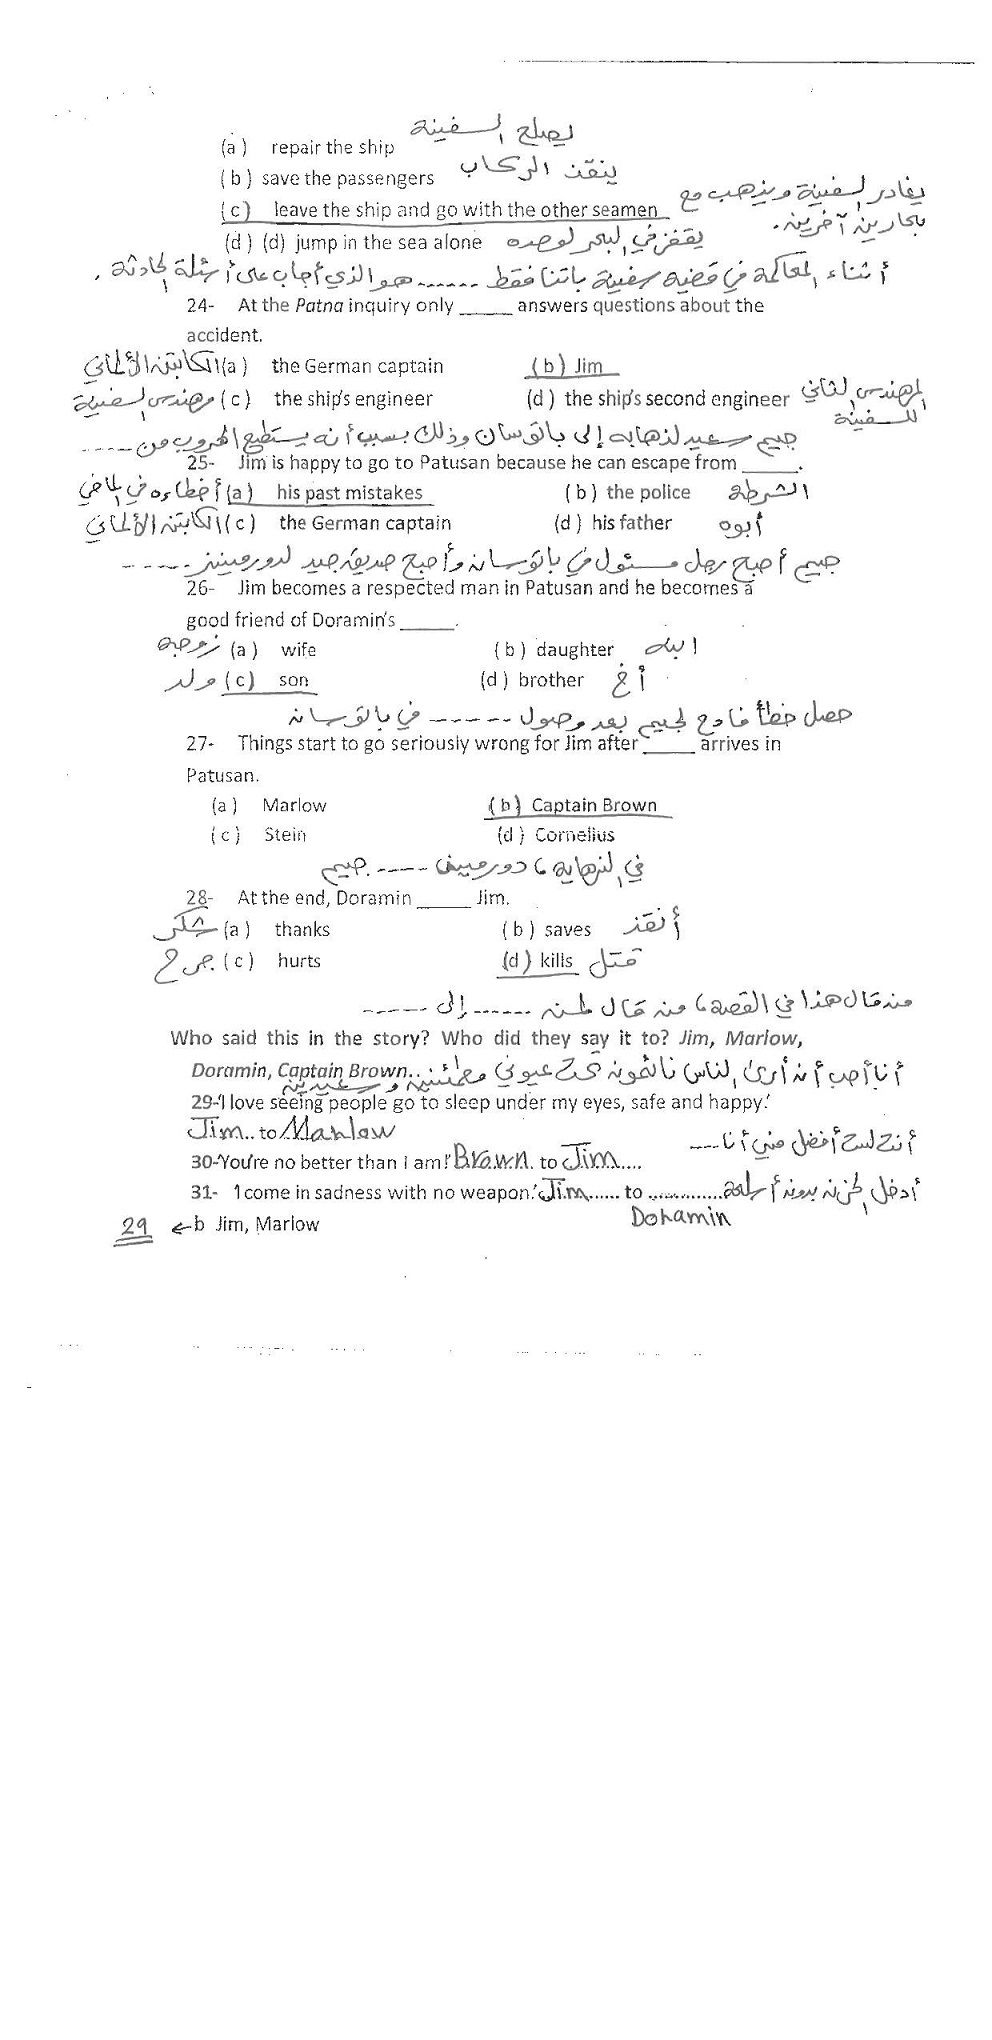 (a) repair the ship يصلح السفينة
(b) save the passengers ينقذ الركاب
(c) leave the ship and go with the other seamen يغادر السفينة ويذهب مع
بحارين آخرين.
(d) (d) jump in the sea alone يقفز في البحر لوحده
أثناء المحاكمة في قضية سفينة باتنا فقط ------- هو الذي أجاب على أسئلة الحادثة.
24- At the Patna inquiry only _____ answers questions about the
accident.
(a) the German captain الكابتن الألماني (b) Jim
(c) the ship's engineer مهندس السفينة (d) the ship's second engineer المهندس الثاني
للسفينة
جيم سعيد لذهابه إلى باتوسان وذلك بسبب أنه يستطيع الهروب من -----
25- Jim is happy to go to Patusan because he can escape from _____.
(a) his past mistakes أخطاءه في الماضي (b) the police الشرطة
(c) the German captain الكابتن الألماني (d) his father أبوه
جيم أصبح رجل مسئول في باتوسان وأصبح صديق جيد لدورمينز -----
26- Jim becomes a respected man in Patusan and he becomes a
good friend of Doramin's _____.
(a) wife زوجة (b) daughter ابنه
(c) son ولد (d) brother أخ
حصل خطأ فادح لجيم بعد وصول ------ في باتوسان
27- Things start to go seriously wrong for Jim after _____ arrives in
Patusan.
(a) Marlow (b) Captain Brown
(c) Stein (d) Cornelius
في النهاية، دورمين ----- جيم
28- At the end, Doramin _____ Jim.
(a) thanks شكر (b) saves أنقذ
(c) hurts جرح (d) kills قتل
من قال هذا في القصة، من قال لمن ------ إلى -----
Who said this in the story? Who did they say it to? Jim, Marlow,
Doramin, Captain Brown.. أنا أحب أن أرى الناس نائمون تحت عيوني مطمئنين
وسعيدين
29-'I love seeing people go to sleep under my eyes, safe and happy.'
Jim.. to Marlow
أنت لست أفضل مني أنا ---
30-You're no better than I am!' Brown. to Jim....
31- 'I come in sadness with no weapon.' Jim...... to ............. أدخل الحزن بدون أسلحة
Doramin
29 ←b Jim, Marlow